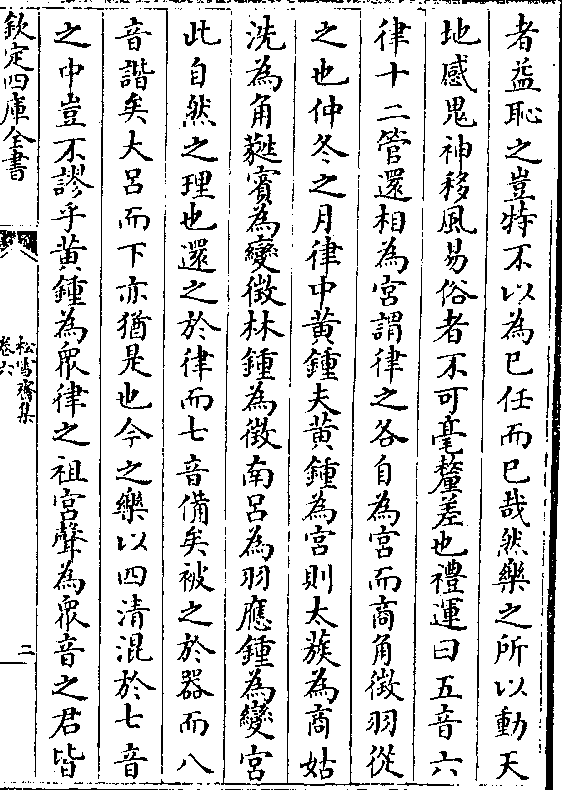 者益恥之豈特不以為已任而已哉然樂之所以動天
地感鬼神移風易俗者不可毫釐差也禮運曰五音六
律十二管還相為宮謂律之各自為宮而商角徴羽從
之也仲冬之月律中黄鍾夫黄鍾為宮則太蔟為商姑
洗為角蕤賓為變徴林鍾為徴南吕為羽應鍾為變宮
此自然之理也還之於律而七音備矣被之於器而八
音諧矣大吕而下亦猶是也今之樂以四清混於七音
之中豈不謬乎黄鍾為衆律之祖宮聲為衆音之君皆
欽定四庫全書
松雪齋集
卷六
二